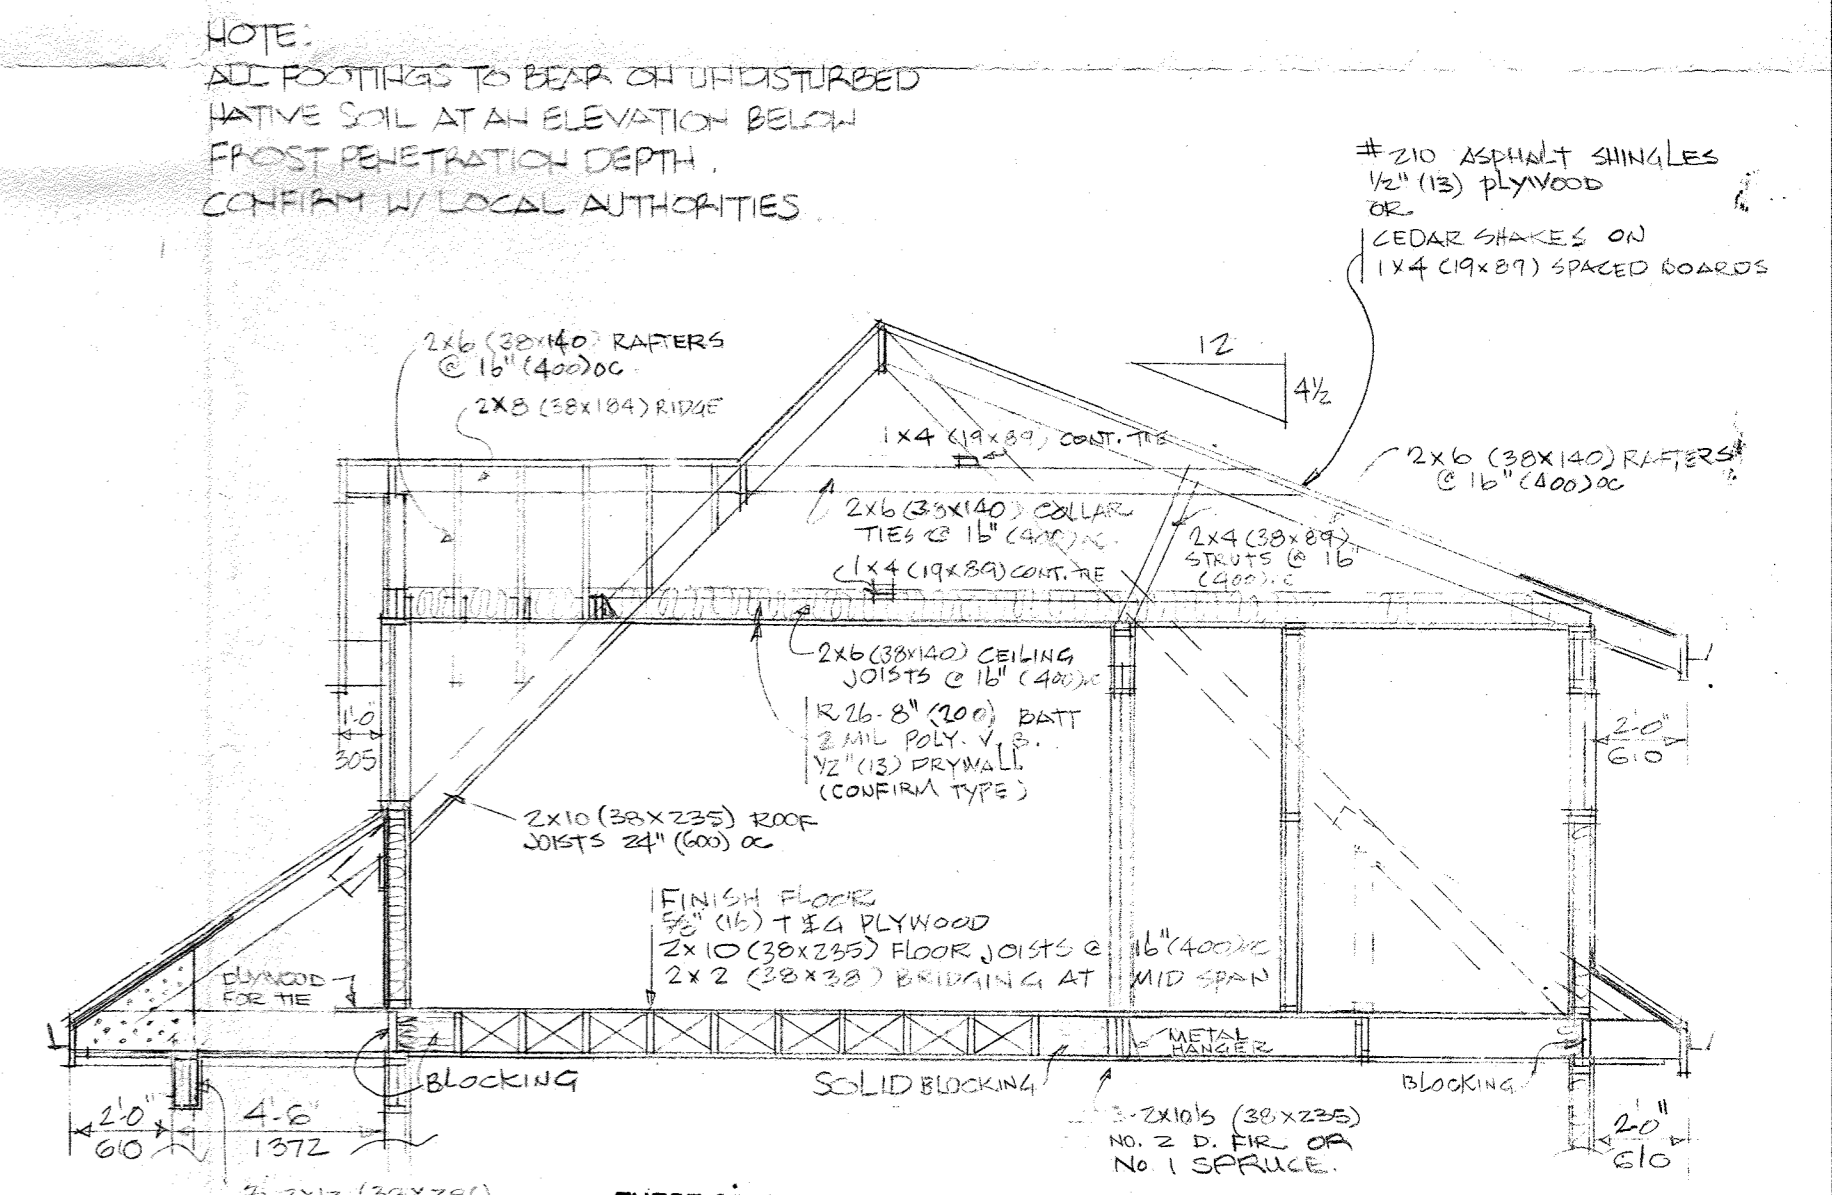 NOTE:
ALL FOOTINGS TO BEAR ON UNDISTURBED
NATIVE SOIL AT AN ELEVATION BELOW
FROST PENETRATION DEPTH.
CONFIRM W/ LOCAL AUTHORITIES
#210 ASPHALT SHINGLES
1/2" (13) PLYWOOD
OR
CEDAR SHAKES ON
1X4 (19x89) SPACED BOARDS
2x6 (38x140) RAFTERS
@ 16" (400) OC
2x8 (38x184) RIDGE
12
4½
1x4 (19x89) CONT. TIE
2x6 (38X140) RAFTERS
@ 16" (400) OC
2x6 (38x140) COLLAR
TIES @ 16" (400) OC.
1x4 (19x89) CONT. TIE
2x4 (38x89)
STRUTS @ 16"
(400)
2x6 (38x140) CEILING
JOISTS @ 16" (400) OC
R 26-8" (200) BATT
2 MIL POLY. V.B.
1/2" (13) DRYWALL
(CONFIRM TYPE)
1'-0"
305
2'-0"
610
2x10 (38X235) ROOF
JOISTS 24" (600) OC
FINISH FLOOR
5/8" (16) T & G PLYWOOD
2x10 (38x235) FLOOR JOISTS @ 16" (400) OC
2x2 (38x38) BRIDGING AT MID SPAN
PLYWOOD
FOR TIE
METAL
HANGER
BLOCKING
SOLID BLOCKING
BLOCKING
2'-0"
610
4'-6"
1372
3-2X10'S (38X235)
NO. 2 D. FIR OR
NO. 1 SPRUCE.
2'-0"
610